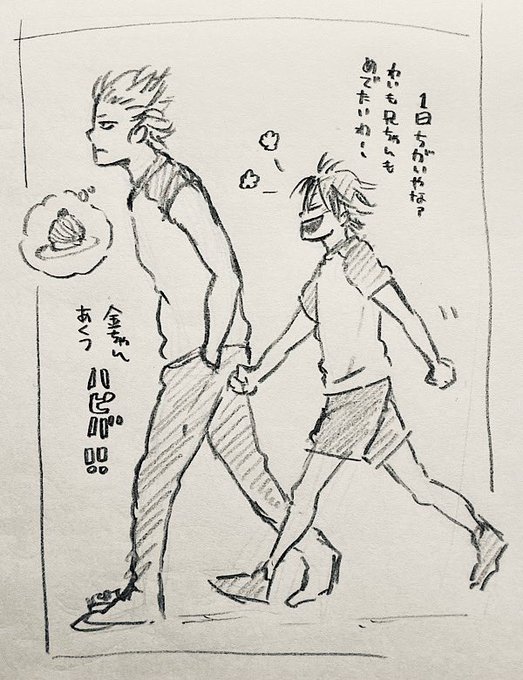 1日ちがいやな?
わいも兄ちゃんも
めでたいわ〜
金ちゃん
あくつ
ハピバ!!